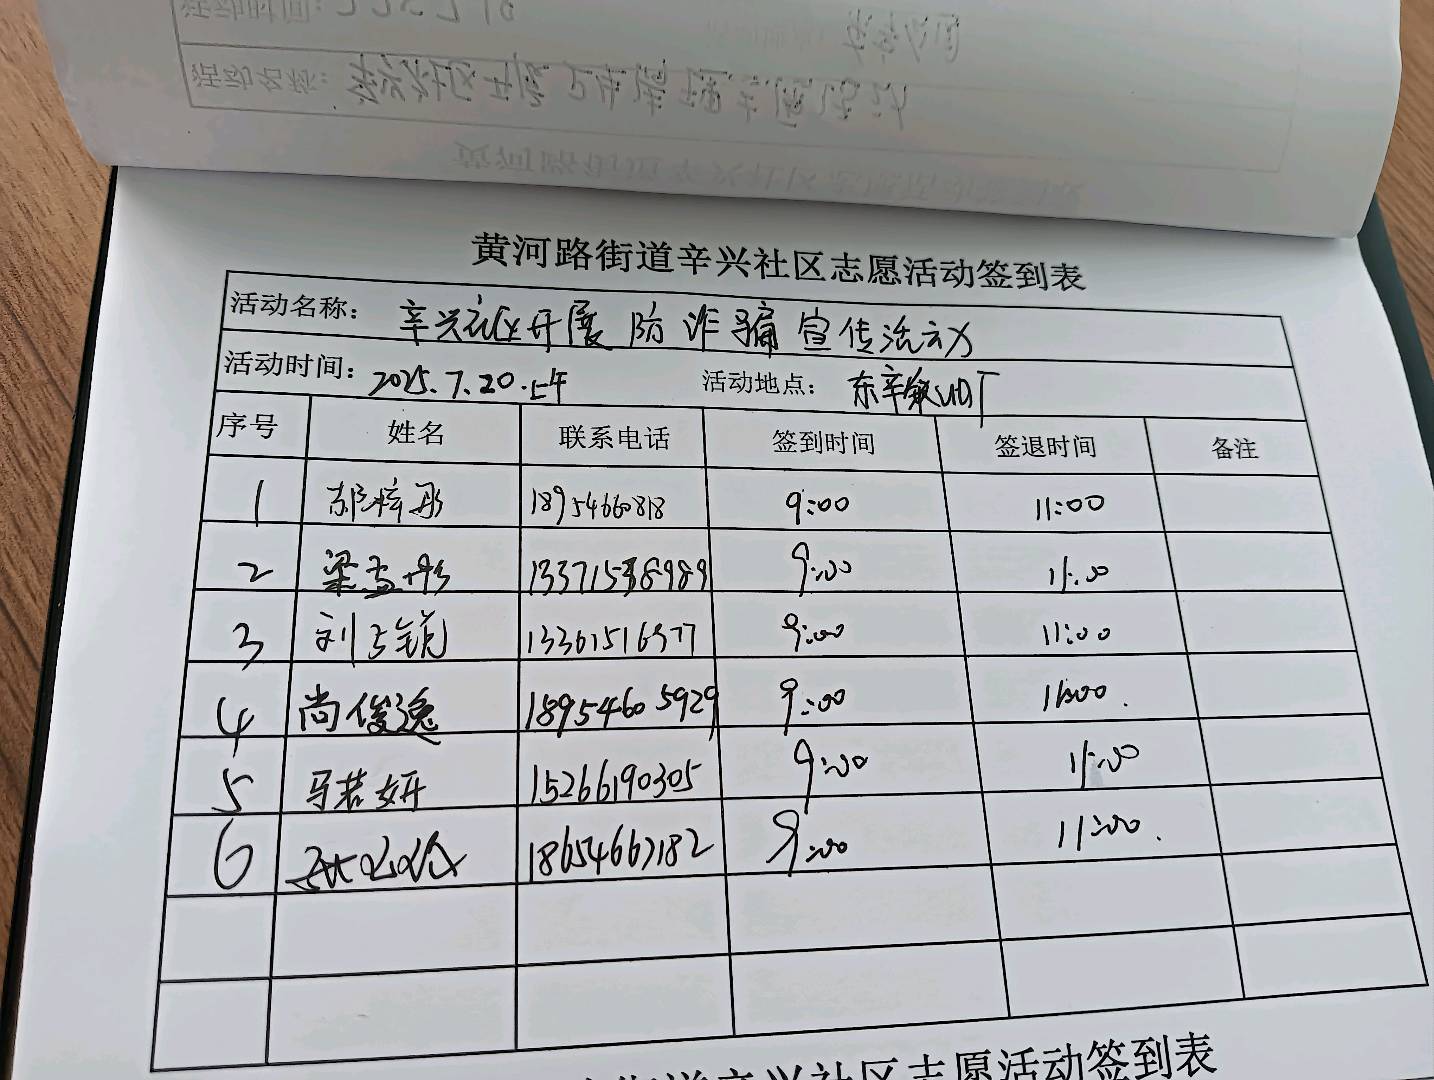 黄河路街道辛兴社区志愿活动签到表
活动名称： 辛兴社区开展防诈骗宣传活动
活动时间： 2025.7.20.上午 活动地点： 东辛
序号 姓名 联系电话 签到时间 签退时间 备注
1 郭梓彤 18954660818 9:00 11:00
2 梁孟彤 9:00 11:00
3 刘子锐 9:00 11:00
4 尚俊逸 18954605929 9:00 11:00
5 马若妍 15266190305 9:00 11:00
6 18654667182 9:00 11:00
街道辛兴社区志愿活动签到表